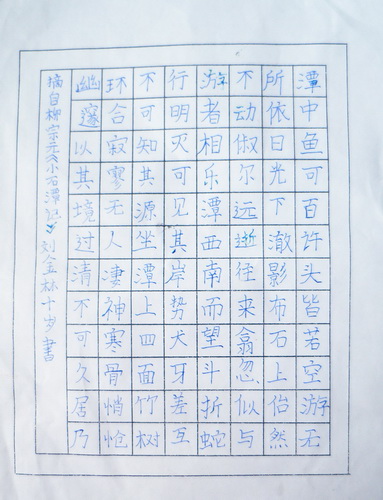 潭中鱼可百许头皆若空游无
所依日光下澈影布石上佁然
不动俶尔远逝往来翕忽似与
游者相乐潭西南而望斗折蛇
行明灭可见其岸势犬牙差互
不可知其源坐潭上四面竹树
环合寂寥无人凄神寒骨悄怆
幽邃以其境过清不可久居乃
摘自柳宗元《小石潭记》刘金林十岁書